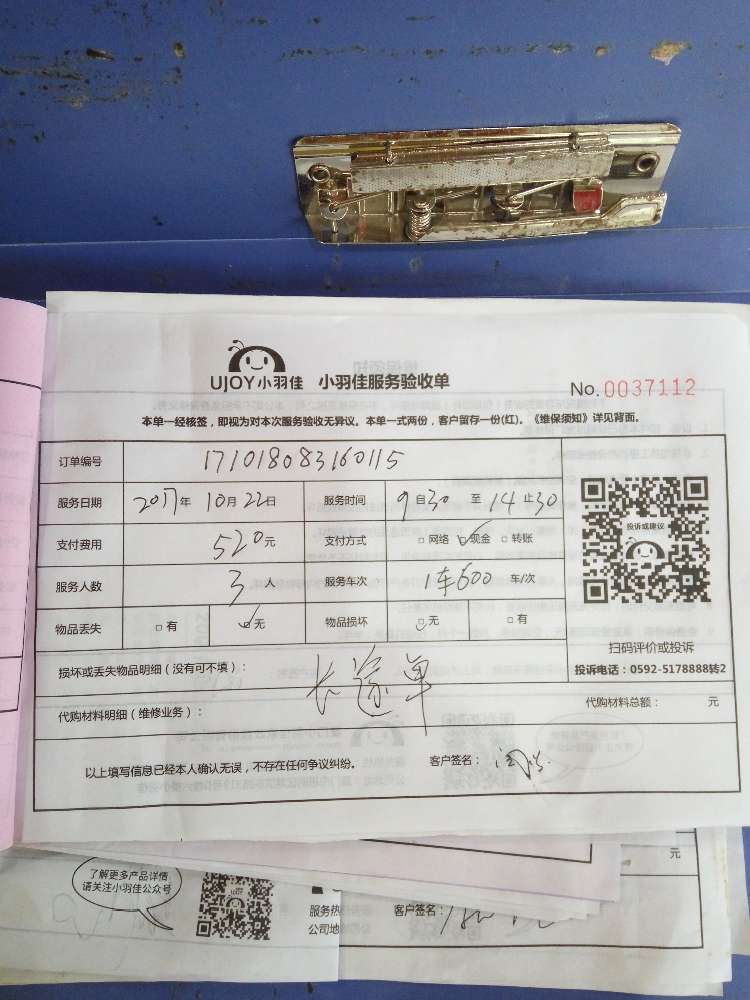 UJOY小羽佳 小羽佳服务验收单
No. 0037112
本单一经核签，即视为对本次服务验收无异议。本单一式两份，客户留存一份(红)。《维保须知》详见背面。
订单编号 171018083160115
服务日期 2017年 10月22日 服务时间 9自30 至 14止30
投诉或建议
支付费用 520元 支付方式 □网络 ☑现金 □转账
服务人数 3 人 服务车次 1车600 车/次
物品丢失 □有 ☑无 物品损坏 ☑无 □有
扫码评价或投诉
损坏或丢失物品明细（没有可不填）： 投诉电话：0592-5178888转2
长途单
代购材料明细（维修业务）： 代购材料总额： 元
以上填写信息已经本人确认无误，不存在任何争议纠纷。 客户签名：
元
了解更多产品详情
请关注小羽佳公众号
服务热 客户签名：
公司地